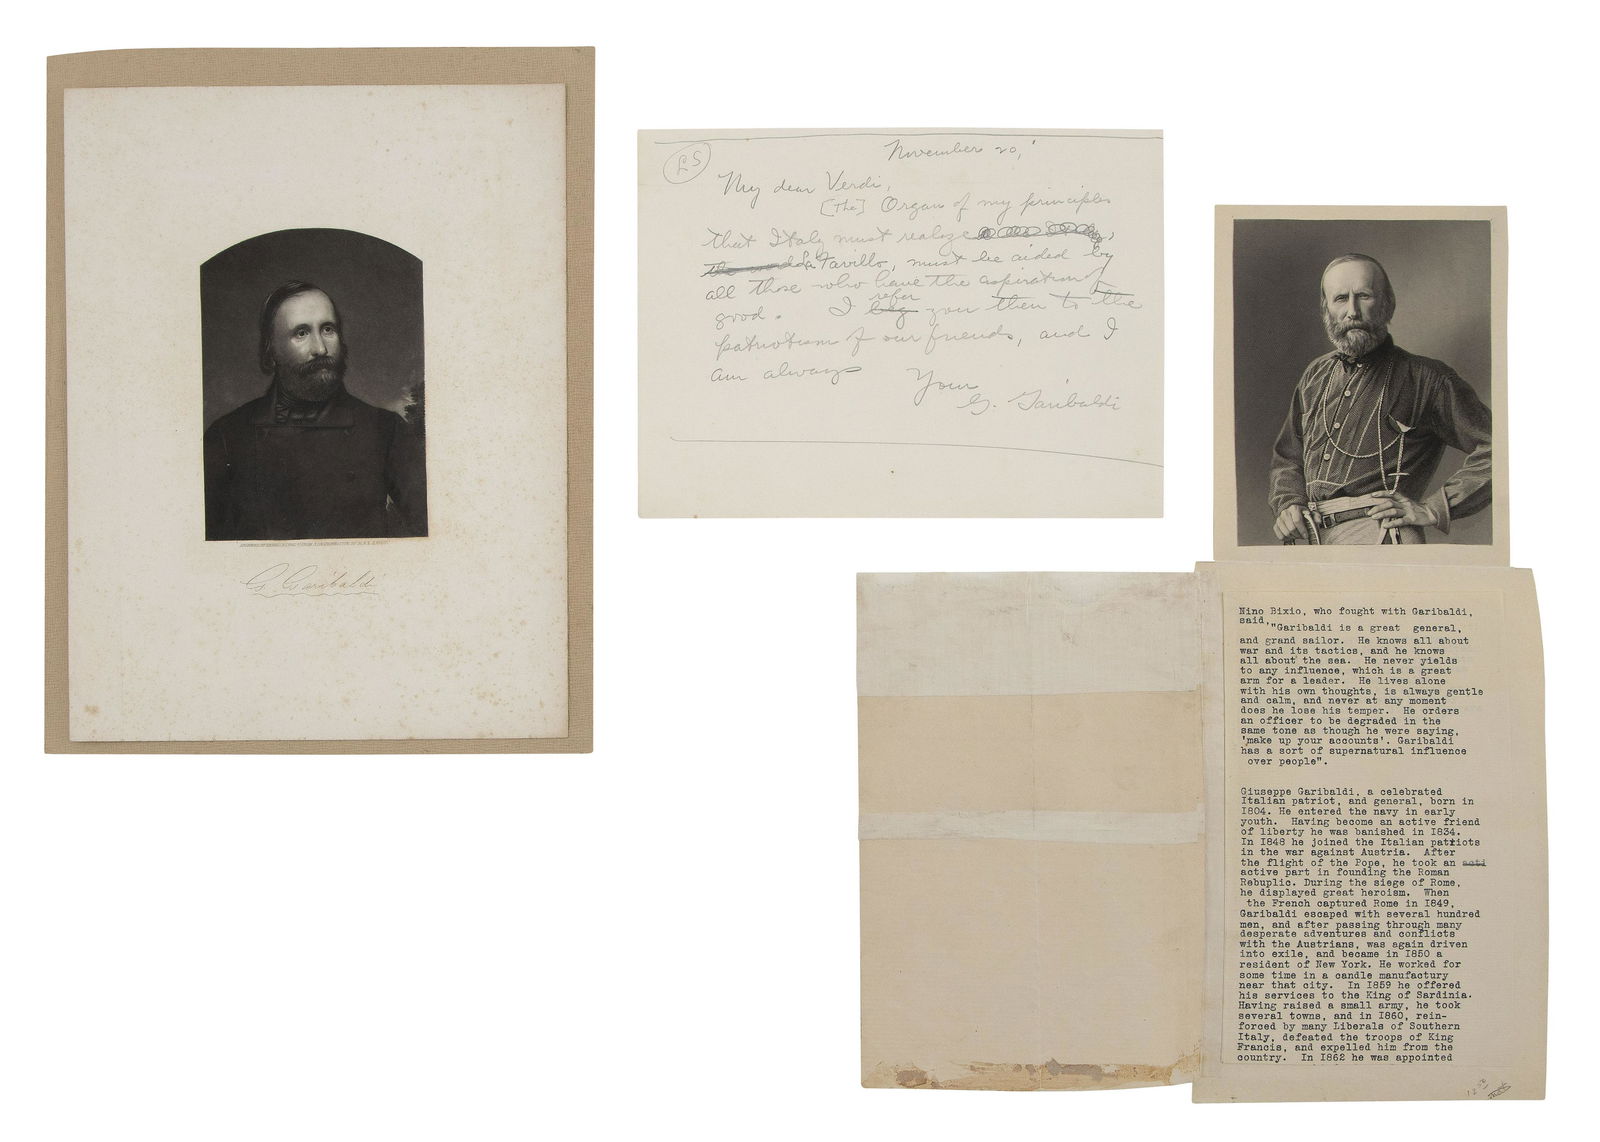 G. Garibaldi
LS
November 20,
My dear Verdi,
[The] Organ of my principles
that Italy must realize
Tavillo, must be aided by
all those who have the aspiration of
good. I beg refer you then to the
patriotism of our friends, and I
am always
Your
G. Garibaldi
Nino Bixio, who fought with Garibaldi,
said,"Garibaldi is a great general,
and grand sailor. He knows all about
war and its tactics, and he knows
all about the sea. He never yields
to any influence, which is a great
arm for a leader. He lives alone
with his own thoughts, is always gentle
and calm, and never at any moment
does he lose his temper. He orders
an officer to be degraded in the
same tone as though he were saying,
'make up your accounts'. Garibaldi
has a sort of supernatural influence
over people".
Giuseppe Garibaldi, a celebrated
Italian patriot, and general, born in
I804. He entered the navy in early
youth. Having become an active friend
of liberty he was banished in I834.
In I848 he joined the Italian patriots
in the war against Austria. After
the flight of the Pope, he took an acti
active part in founding the Roman
Rebuplic. During the siege of Rome,
he displayed great heroism. When
the French captured Rome in I849,
Garibaldi escaped with several hundred
men, and after passing through many
desperate adventures and conflicts
with the Austrians, was again driven
into exile, and became in I850 a
resident of New York. He worked for
some time in a candle manufactury
near that city. In I859 he offered
his services to the King of Sardinia.
Having raised a small army, he took
several towns, and in I860, rein-
forced by many Liberals of Southern
Italy, defeated the troops of King
Francis, and expelled him from the
country. In I862 he was appointed